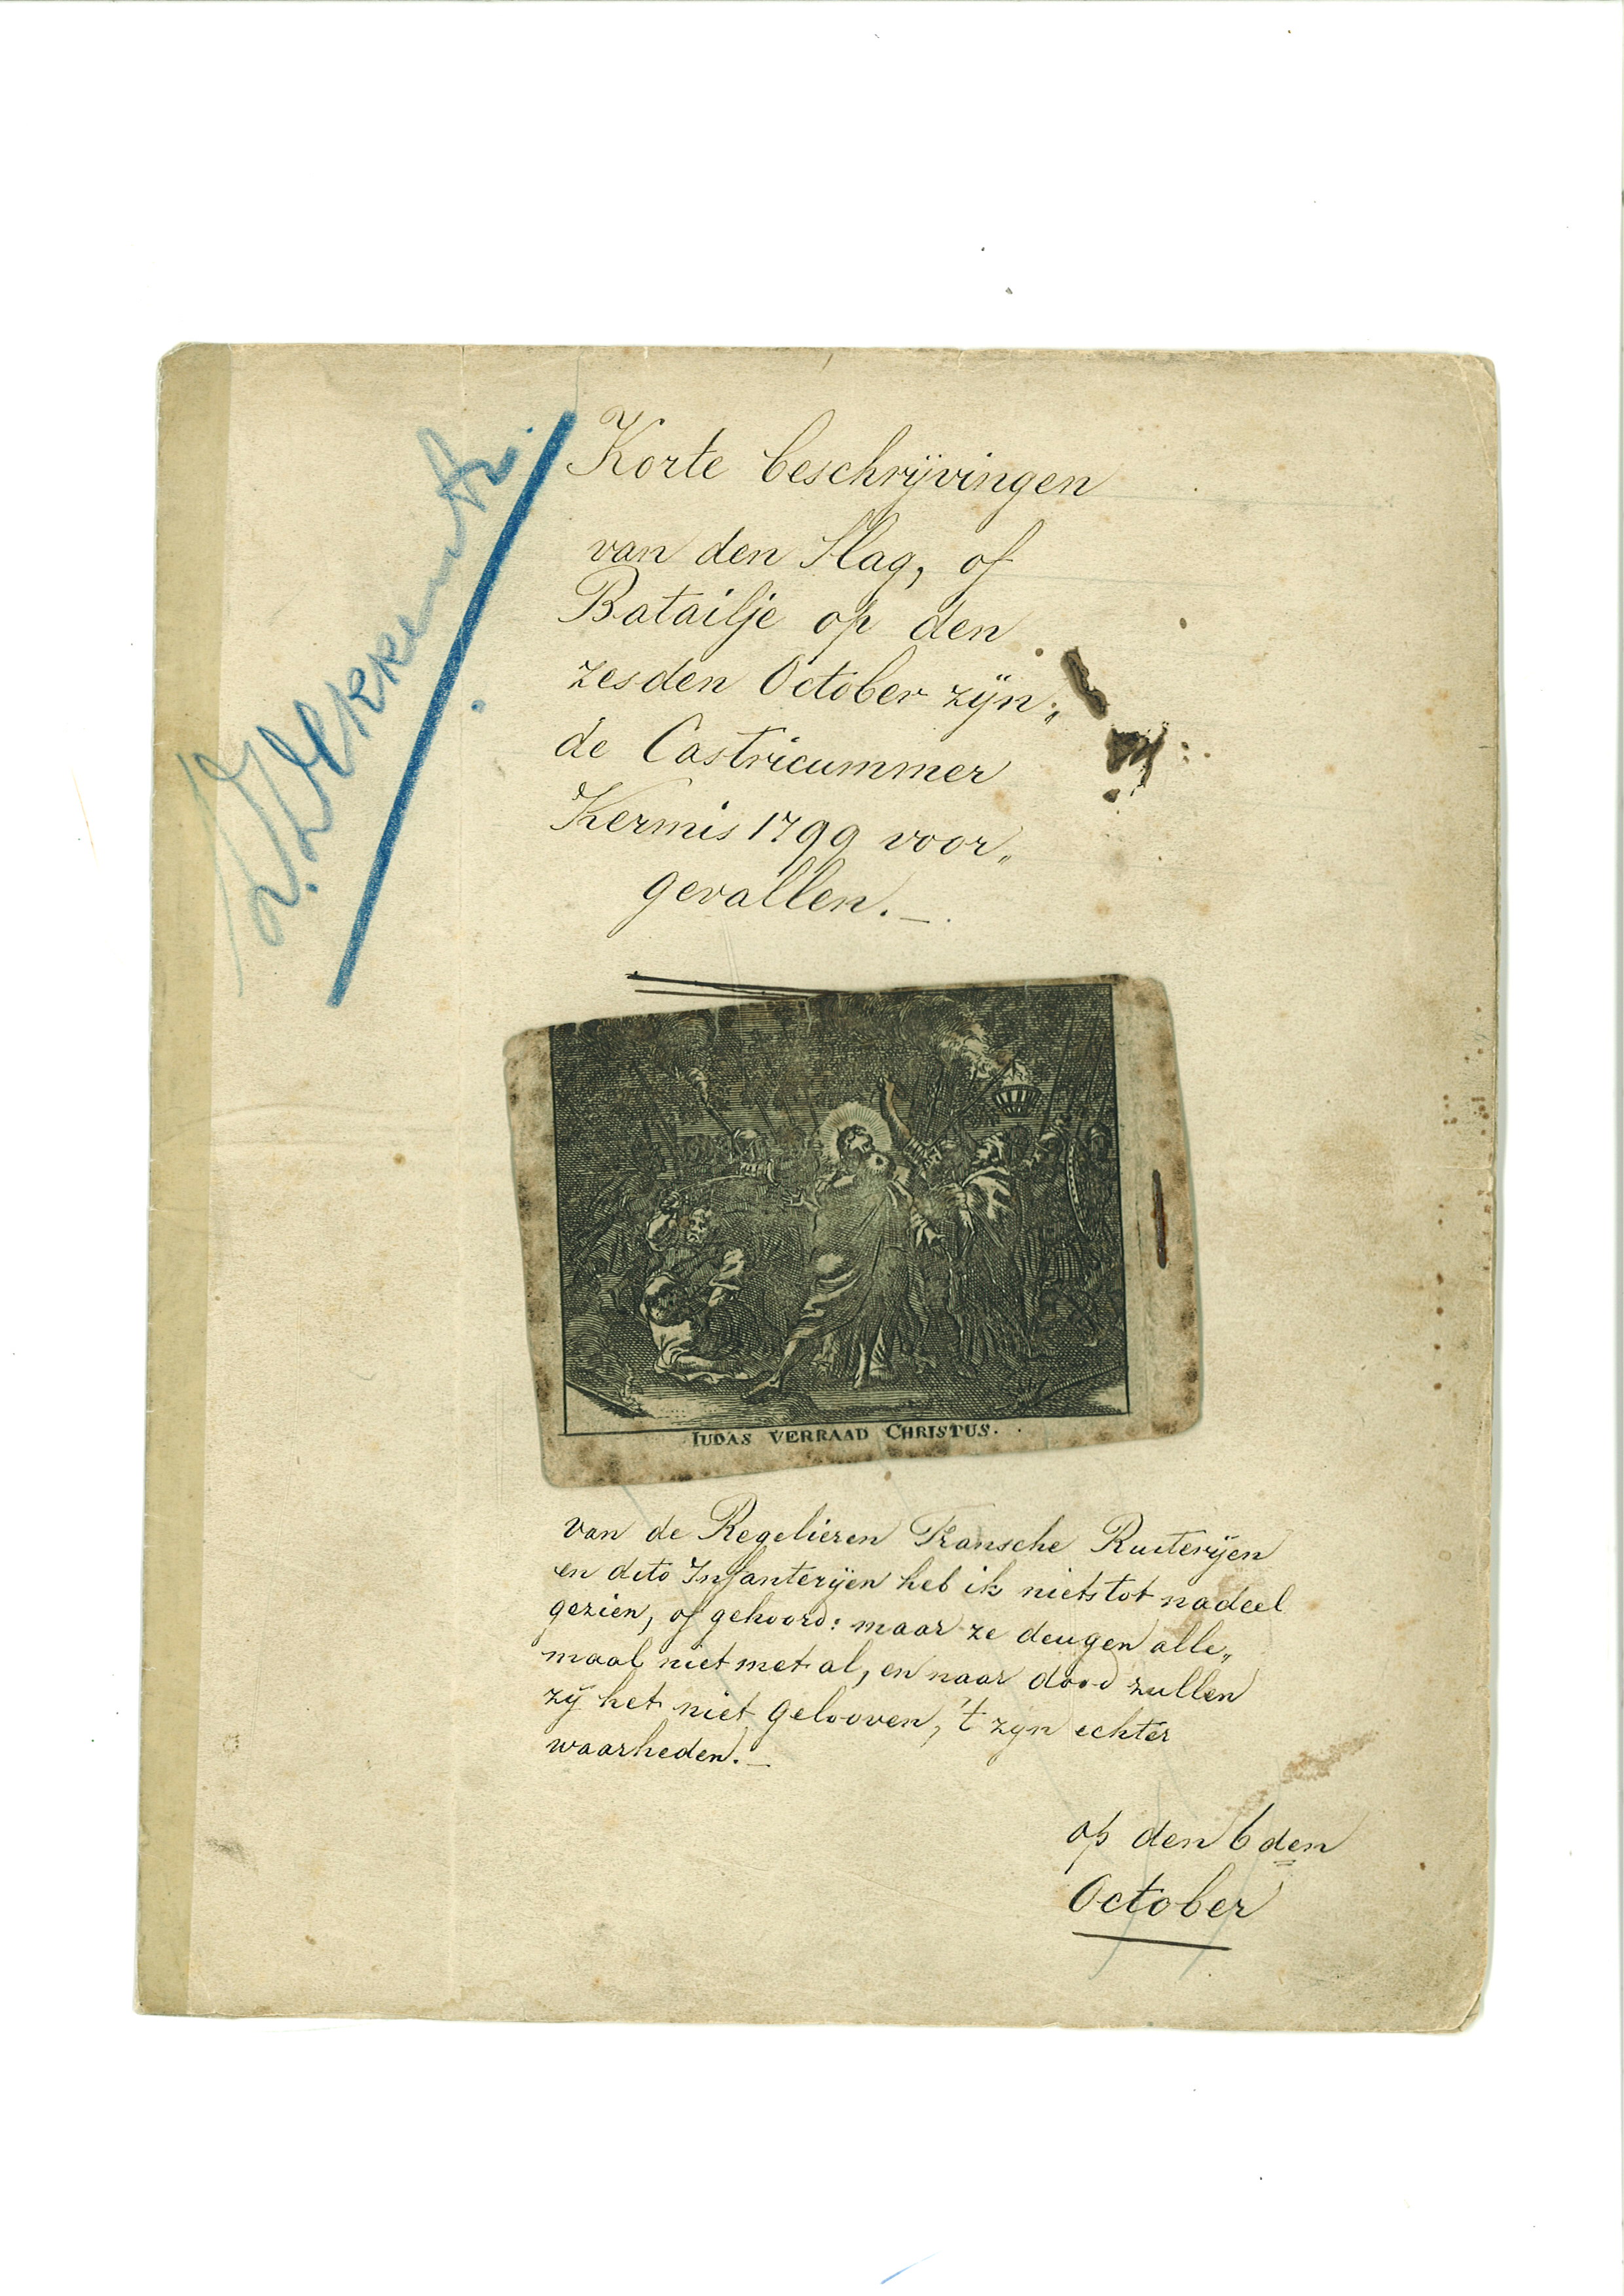 Korte beschrijvingen
van den Slag, of
Batailje op den
zesden October zijn„
de Castricummer
Kermis 1799 voor„
gevallen._
IUDAS VERRAAD CHRISTUS.
van de Regelieren Fransche Ruiterijen
en dito Infanterijen heb ik niets tot nadeel
gezien, of gehoord: maar ze deugen alle„
maal niet met al, en naar dood zullen
zij het niet gelooven, 't zyn echter
waarheden._
op den 6 den
October